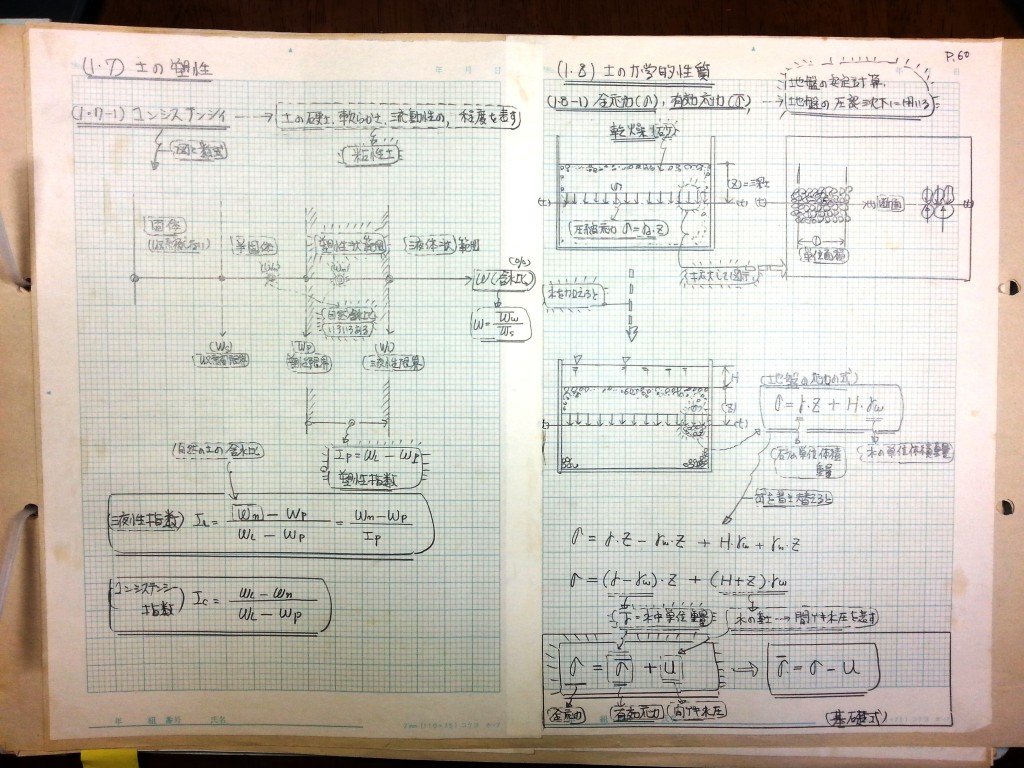 (1・7) 土の塑性
(1・7-1) コンシステンシィ → 土の硬さ、軟らかさ、流動性の、程度を表す
図と数式
粘性土
固体
(収縮しない)
半固体
塑性状範囲
液体状範囲
(Wn)
(Wn)
(%)
W (含水比)
自然含水比
いろいろある
W = Ww / Ws
(Ws)
収縮限界
(Wp)
塑性限界
(WL)
液性限界
自然の土の含水比
Ip = WL - Wp
塑性指数
液性指数) IL = (Wn - Wp) / (WL - Wp) = (Wn - Wp) / Ip
コンシステンシー指数) Ic = (WL - Wn) / (WL - Wp)
年 組 番号 氏名
P.60
(1・8) 土の力学的性質
(1・8-1) 全応力(σ)、有効応力(σ̄) →
地盤の安定計算、
地盤の圧密沈下に用いる
乾燥砂
(Z)
圧縮応力 σ = γ・Z
断面
単位面積
拡大して図示
水を加えると
H
(Z)
(地盤の応力の式)
σ = γ・Z + H・γw
砂の単位体積重量
水の単位体積重量
式を書き替えると
σ = γ・Z - γw・Z + H・γw + γw・Z
σ = (γ - γw)・Z + (H + Z)γw
γ̄ = 水中単位重量
水の重さ → 間ゲキ水圧を表す
σ = σ̄ + u ⇒ σ̄ = σ - u
全応力
有効応力
間ゲキ水圧
(基礎式)